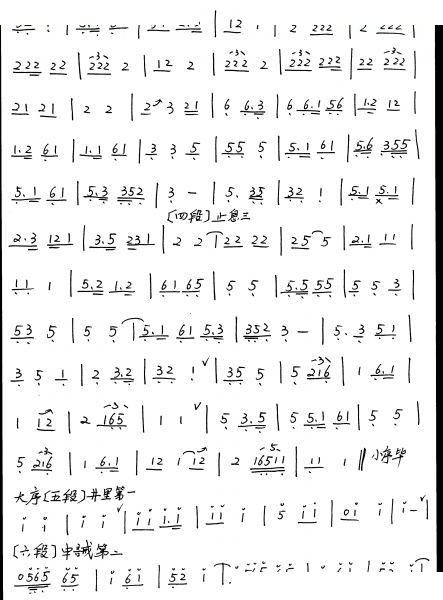 222 22 | 222 2 | 12 2 | 222 2 | 222 222 | 22 222
21 21 | 2 2 | 2 3 21 | 6 6.3 | 6 6.1 56 | 1.2 12 |
1.2 61 | 1.1 61 | 3 3 5 | 55 5 | 5.1 61 | 5.6 3.55 |
5.1 61 | 5.3 352 | 3 - | 5. 35 | 32 1 | 5.1 5.1 |
[四段]止息三
2.3 121 | 3.5 231 | 2 2 | 22 22 | 25 5 | 2.1 11 |
11 1 | 5.2 1.2 | 61 65 | 5 5 | 5.5 55 | 5 5 3 |
53 5 | 5 5 | 5.1 61 5.3 | 352 3 - | 5. 3 51 |
3 5 1 | 2 3.2 | 32 1 | 35 5 | 5 216 | 1 6.1 |
1 12 | 2 165 | 1 1 | 5 3.5 | 5 5.1 61 | 5 5 |
5 216 | 1 6.1 | 12 1 12 | 2 16511 | 11 1 ‖ 小序毕
大序[五段]井里第一
i i | i i | i i i.i | i i i | 5 i i | 0i i | i - |
[六段]申诚第二
0565 65 | i 6i | 52 i |